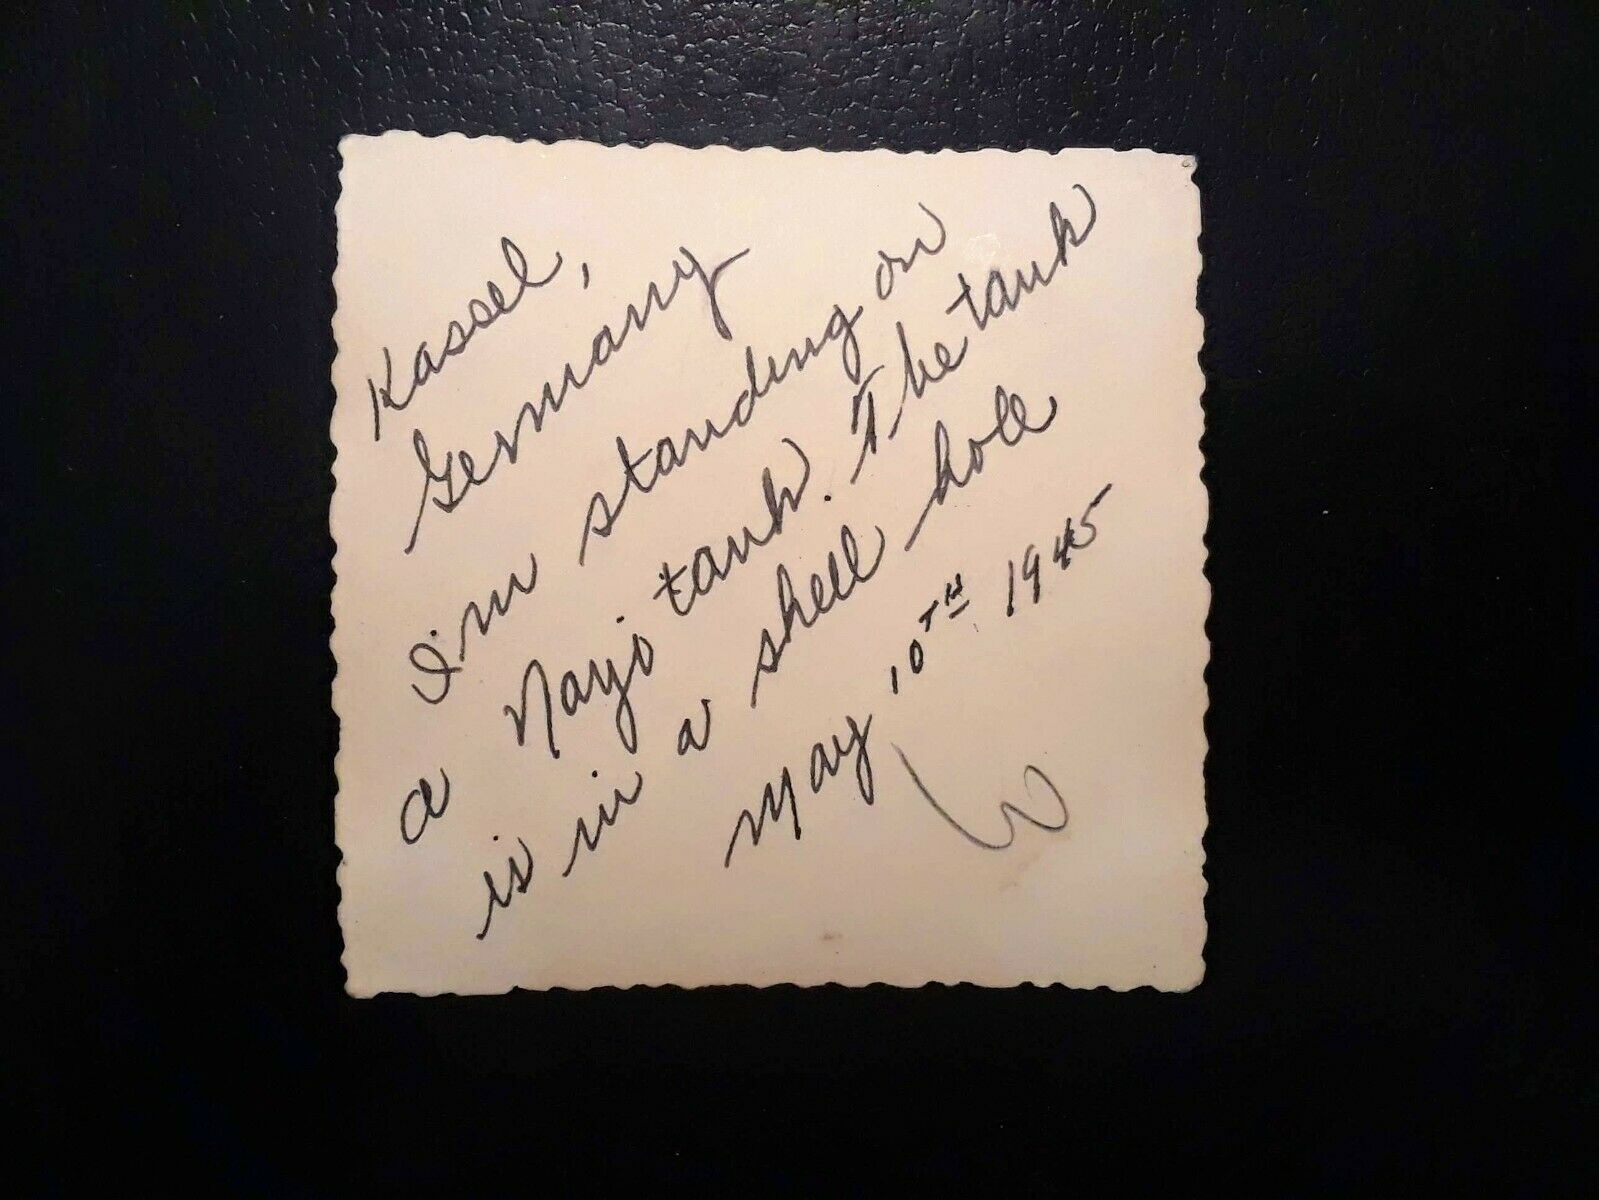 Kassel,
Germany
I'm standing on
a Nazi tank. The tank
is in a shell hole
May 10TH 1945
W